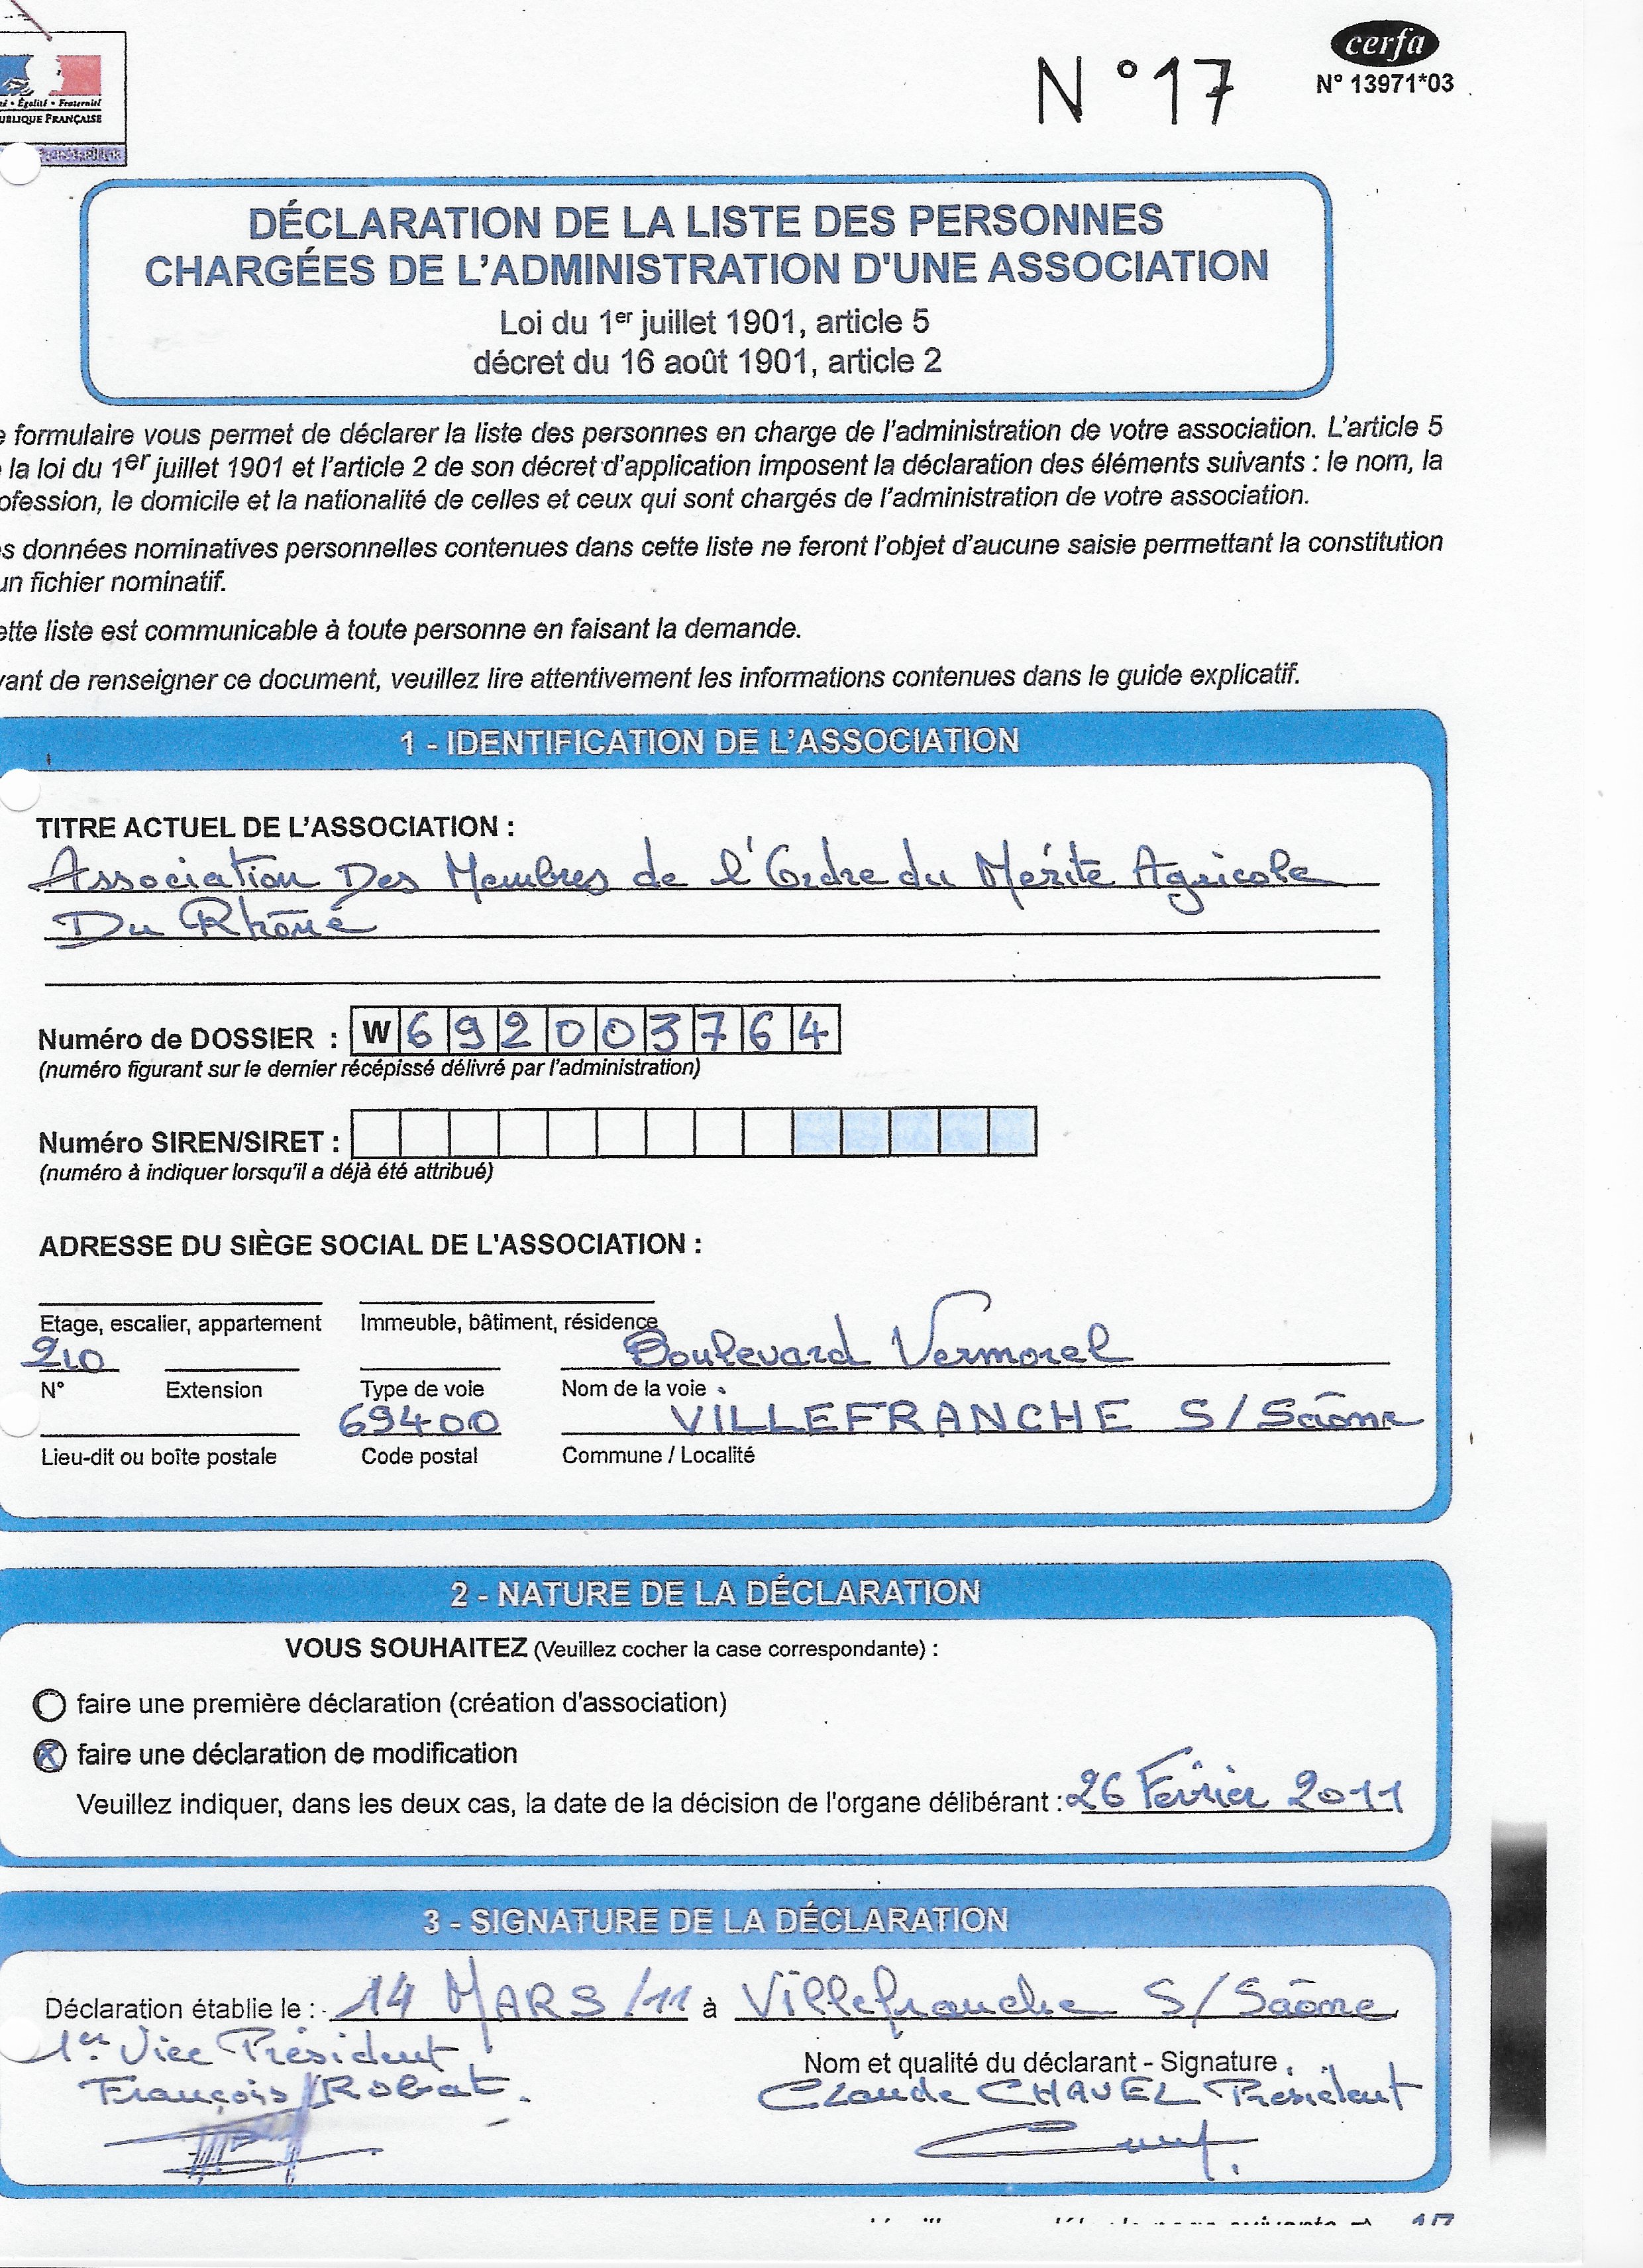 cerfa
N° 17
N° 13971*03
é • Égalité • Fraternité
UBLIQUE FRANÇAISE
DÉCLARATION DE LA LISTE DES PERSONNES
CHARGÉES DE L'ADMINISTRATION D'UNE ASSOCIATION
Loi du 1er juillet 1901, article 5
décret du 16 août 1901, article 2
e formulaire vous permet de déclarer la liste des personnes en charge de l'administration de votre association. L'article 5
la loi du 1er juillet 1901 et l'article 2 de son décret d'application imposent la déclaration des éléments suivants : le nom, la
ofession, le domicile et la nationalité de celles et ceux qui sont chargés de l'administration de votre association.
s données nominatives personnelles contenues dans cette liste ne feront l'objet d'aucune saisie permettant la constitution
un fichier nominatif.
ette liste est communicable à toute personne en faisant la demande.
vant de renseigner ce document, veuillez lire attentivement les informations contenues dans le guide explicatif.
1 - IDENTIFICATION DE L'ASSOCIATION
TITRE ACTUEL DE L'ASSOCIATION :
Association Des Membres de l'Ordre du Mérite Agricole
Du Rhône
Numéro de DOSSIER : W692003764
(numéro figurant sur le dernier récépissé délivré par l'administration)
Numéro SIREN/SIRET :
(numéro à indiquer lorsqu'il a déjà été attribué)
ADRESSE DU SIÈGE SOCIAL DE L'ASSOCIATION :
Etage, escalier, appartement Immeuble, bâtiment, résidence
210 Boulevard Vermorel
N° Extension Type de voie Nom de la voie
69400 VILLEFRANCHE S/Saône
Lieu-dit ou boîte postale Code postal Commune / Localité
2 - NATURE DE LA DÉCLARATION
VOUS SOUHAITEZ (Veuillez cocher la case correspondante) :
faire une première déclaration (création d'association)
faire une déclaration de modification
Veuillez indiquer, dans les deux cas, la date de la décision de l'organe délibérant : 26 Février 2011
3 - SIGNATURE DE LA DÉCLARATION
Déclaration établie le : 14 MARS/11 à Villefranche S/Saône
1er Vice Président
Nom et qualité du déclarant - Signature
François Robat.
Claude CHAVEL Président
1/7